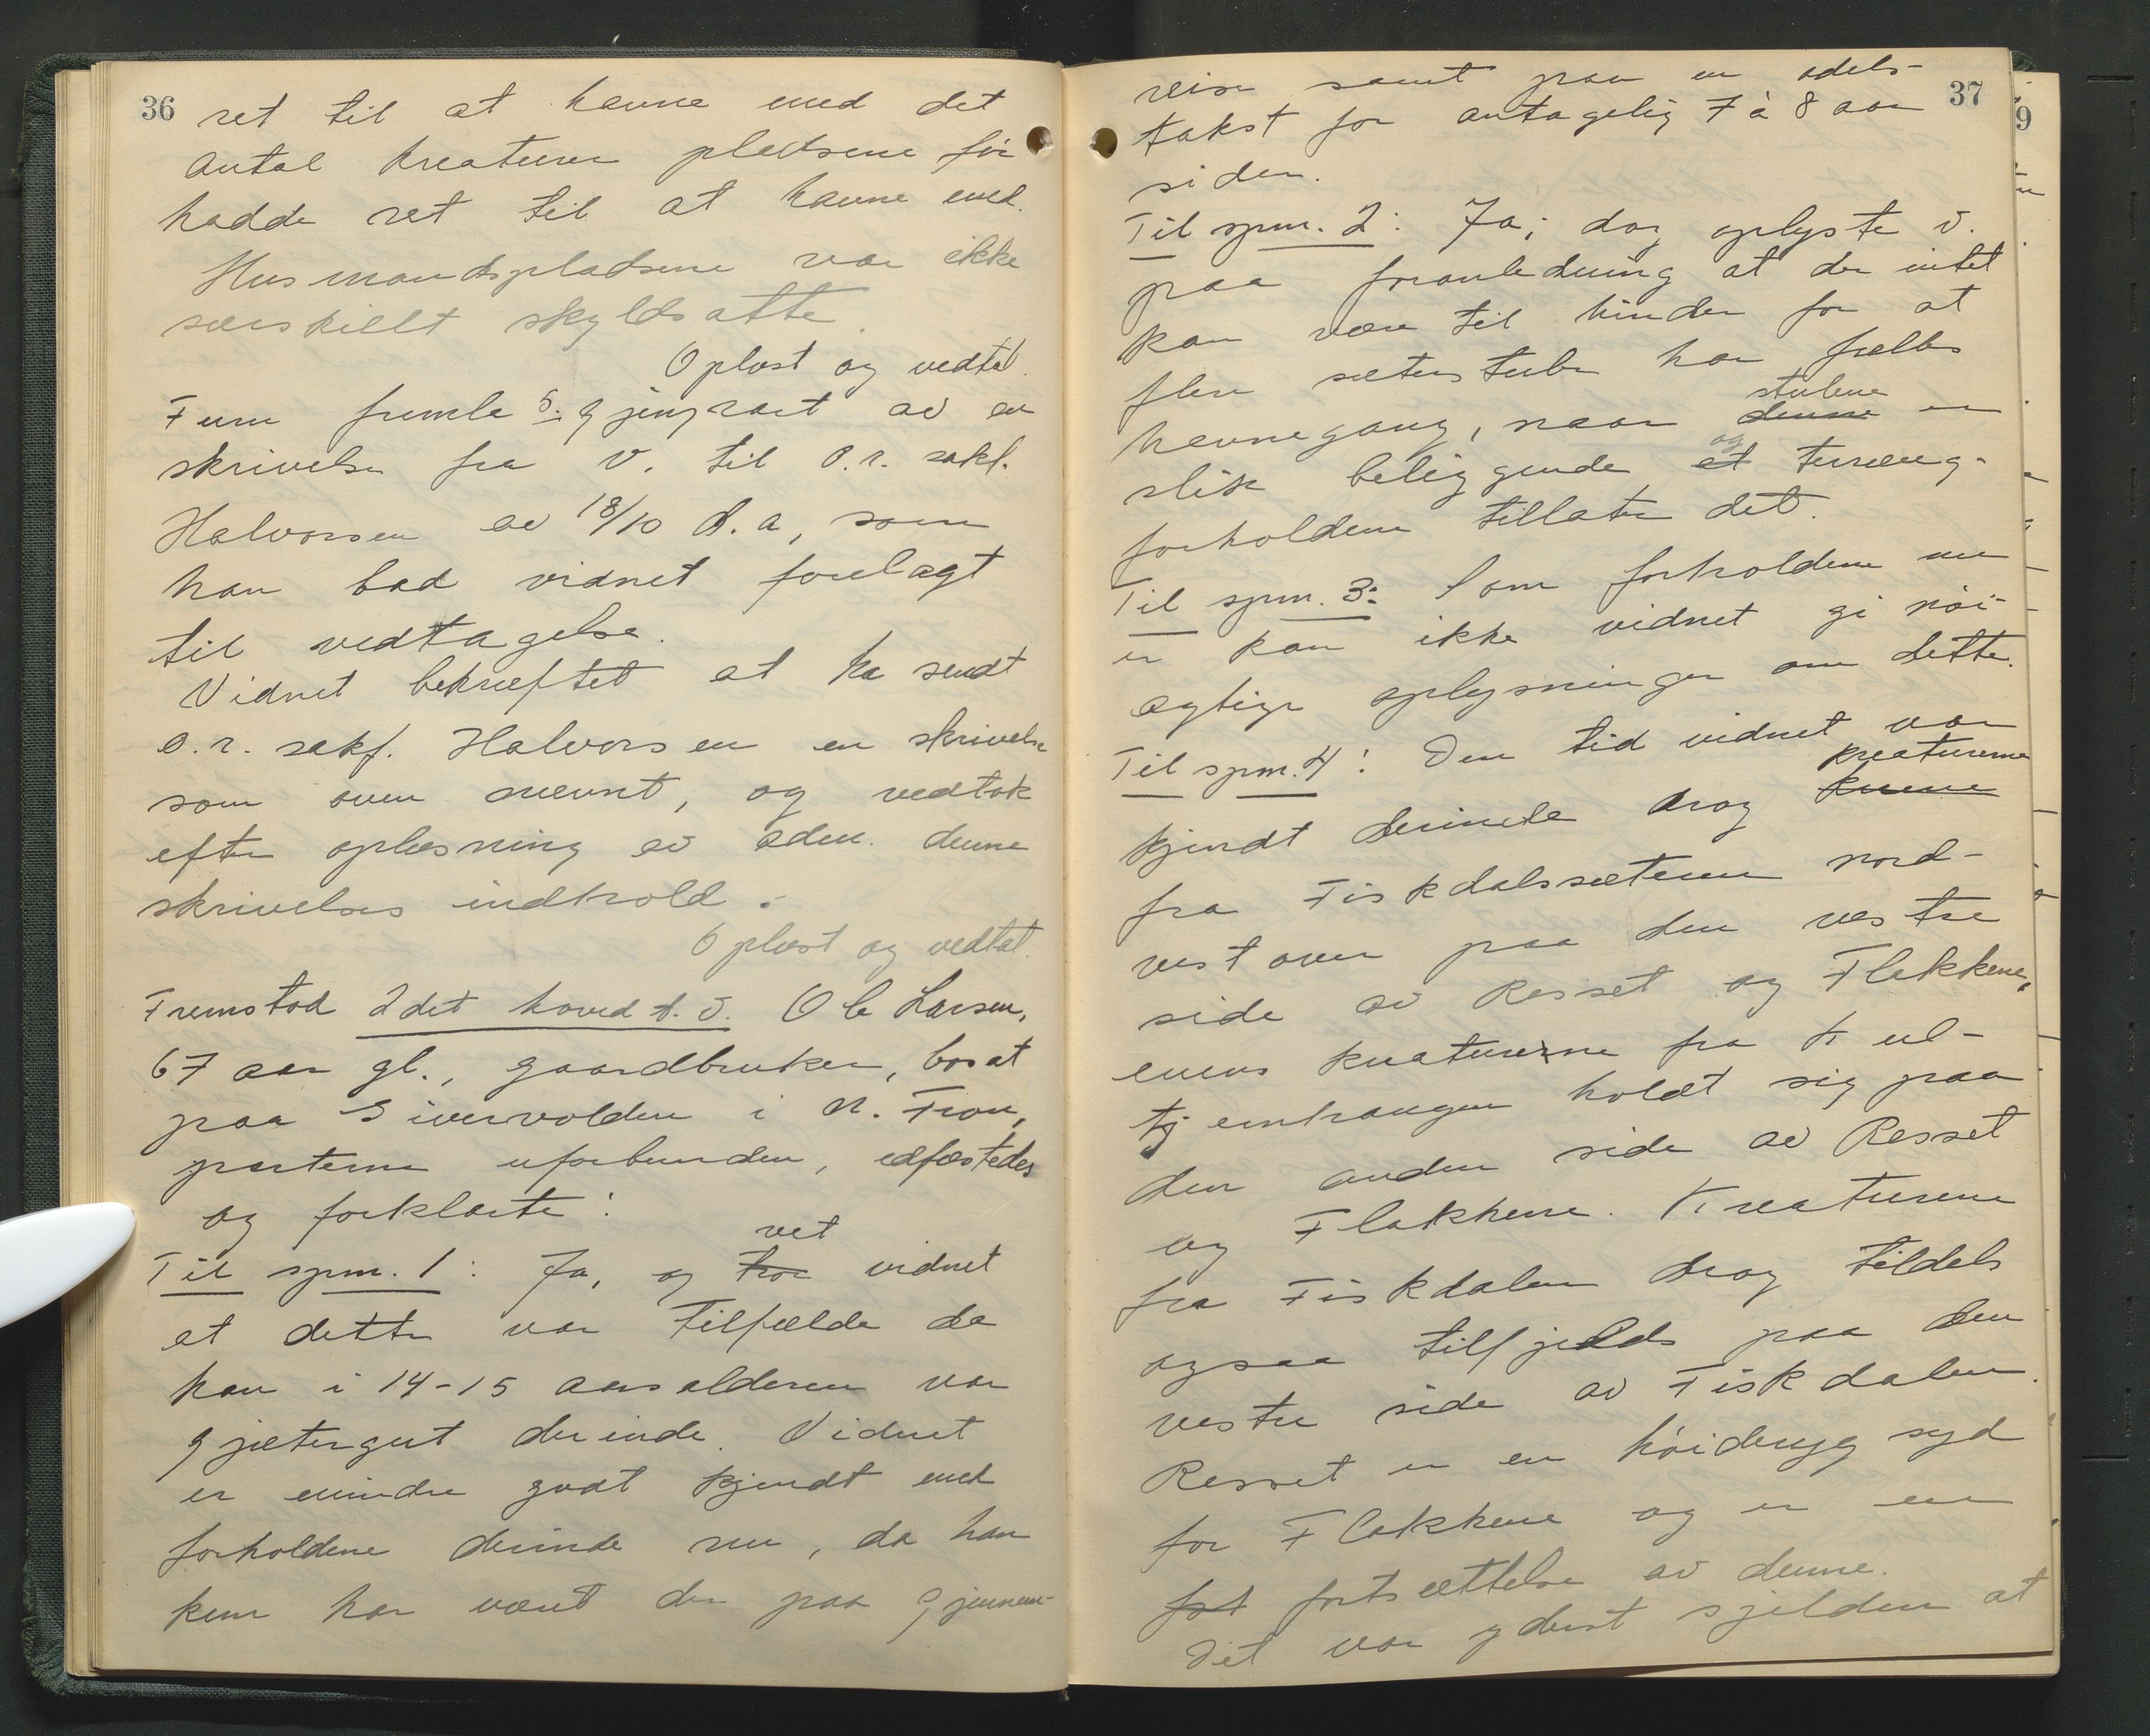 36
ret til at havne med det
antal kreaturer pladsene før
hadde ret til at havne med.
Husmandspladsene var ikke
særskillt skyldsatte.
Oplæst og vedtat.
Furu fremla 5. gjengpart av en
skrivelse fra v. til o.r. sakf.
Halvorsen av 18/10 d.a, som
han bad vidnet forelagt
til vedtagelse.
Vidnet bekræftet at ha sendt
o.r. sakf. Halvorsen en skrivelse
som oven nævnt, og vedtok
efter oplæsning av adm. denne
skrivelses indhold.
Oplæst og vedtat.
Fremstod 2det hoved t. v. Ole Larsen,
67 aar gl., gaardbruker, bosat
paa Sivervolden i N. Fron,
parterne uforbunden, edfæstedes
og forklarte:
vet
Til spm. 1: Ja, og tror vidnet
at dette var tilfælde da
han i 14-15 aarsalderen var
gjætergut derinde. Vidnet
er mindre godt kjendt med
forholdene derinde nu, da han
kun har været der paa gjennem-
37
reise samt paa en odels-
takst for antagelig 7 à 8 aar
siden.
Til spm. 2: Ja; dog oplyste v.
paa foranledning at der intet
kan være til hinder for at
flere sæterstuler har fælles
stulene
havnegang, naar denne er
og
slik beliggende at terræng-
forholdene tillater det.
Til spm. 3: Som forholdene nu
er kan ikke vidnet gi nøi-
agtige oplysninger om dette.
Til spm. 4: Den tid vidnet var
kreaturerne
kjendt derinde drog kuene
fra Fiskdalssæteren nord-
vestover paa den vestre
side av Resset og Flakkene,
mens kreaturerne fra Kul-
tjernhaugen holdt sig paa
den anden side av Resset
og Flakkene. Kreaturene
fra Fiskdalen drog tildels
ogsaa tilfjelds paa den
vestre side av Fiskdalen.
Resset er en høideryg syd
for Flakkene og er en
fot fortsættelse av denne.
Det var yderst sjelden at
9